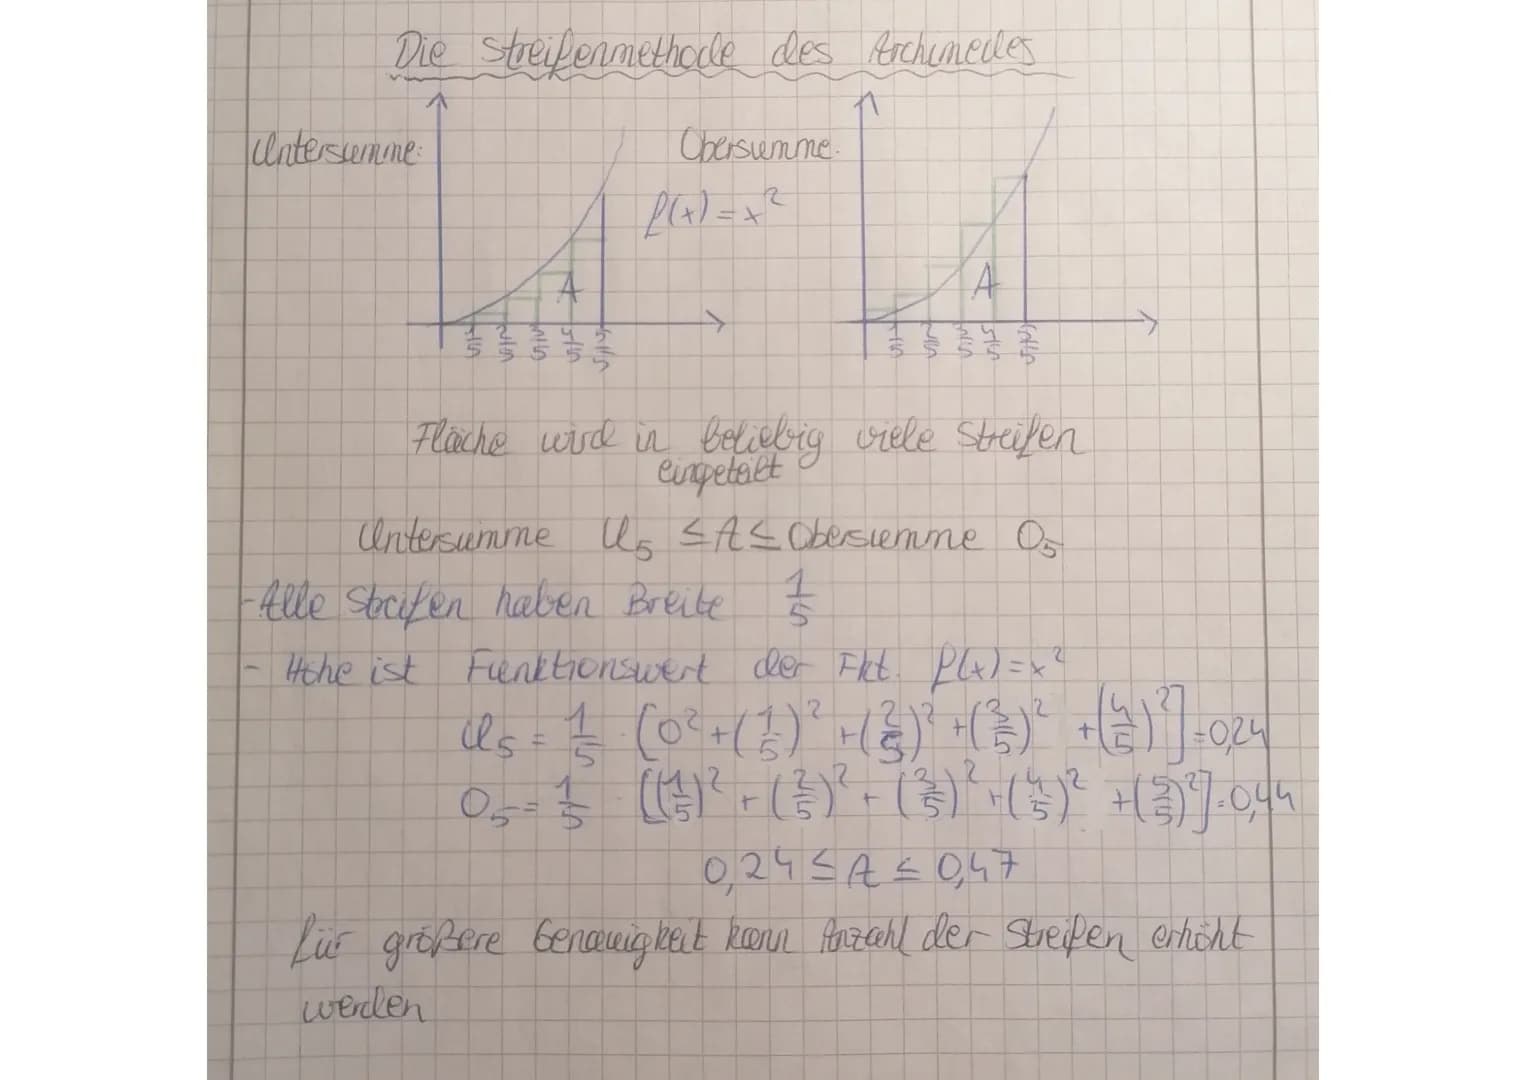 Die Streifenmethode des Archimedes
Untersumme:
Obersumme.
f(x)=x²
A
A
1/5 2/5 3/5 4/5 5/5
1/5 2/5 3/5 4/5 5/5
Fläche wird in beliebig viele Streifen
eingeteilt
Untersumme U₅ ≤A≤ Obersumme O₅
-Alle Streifen haben Breite 1/5
- Höhe ist Funktionswert der Fkt. f(x)=x²
U₅ = 1/5 · [0²+(1/5)²+(2/5)²+(3/5)²+(4/5)²]=0,24
O₅ = 1/5 · [(1/5)²+(2/5)²+(3/5)²+(4/5)²+(5/5)²]=0,44
0,24 ≤ A ≤ 0,47
für größere Genauigkeit kann Anzahl der Streifen erhöht
werden